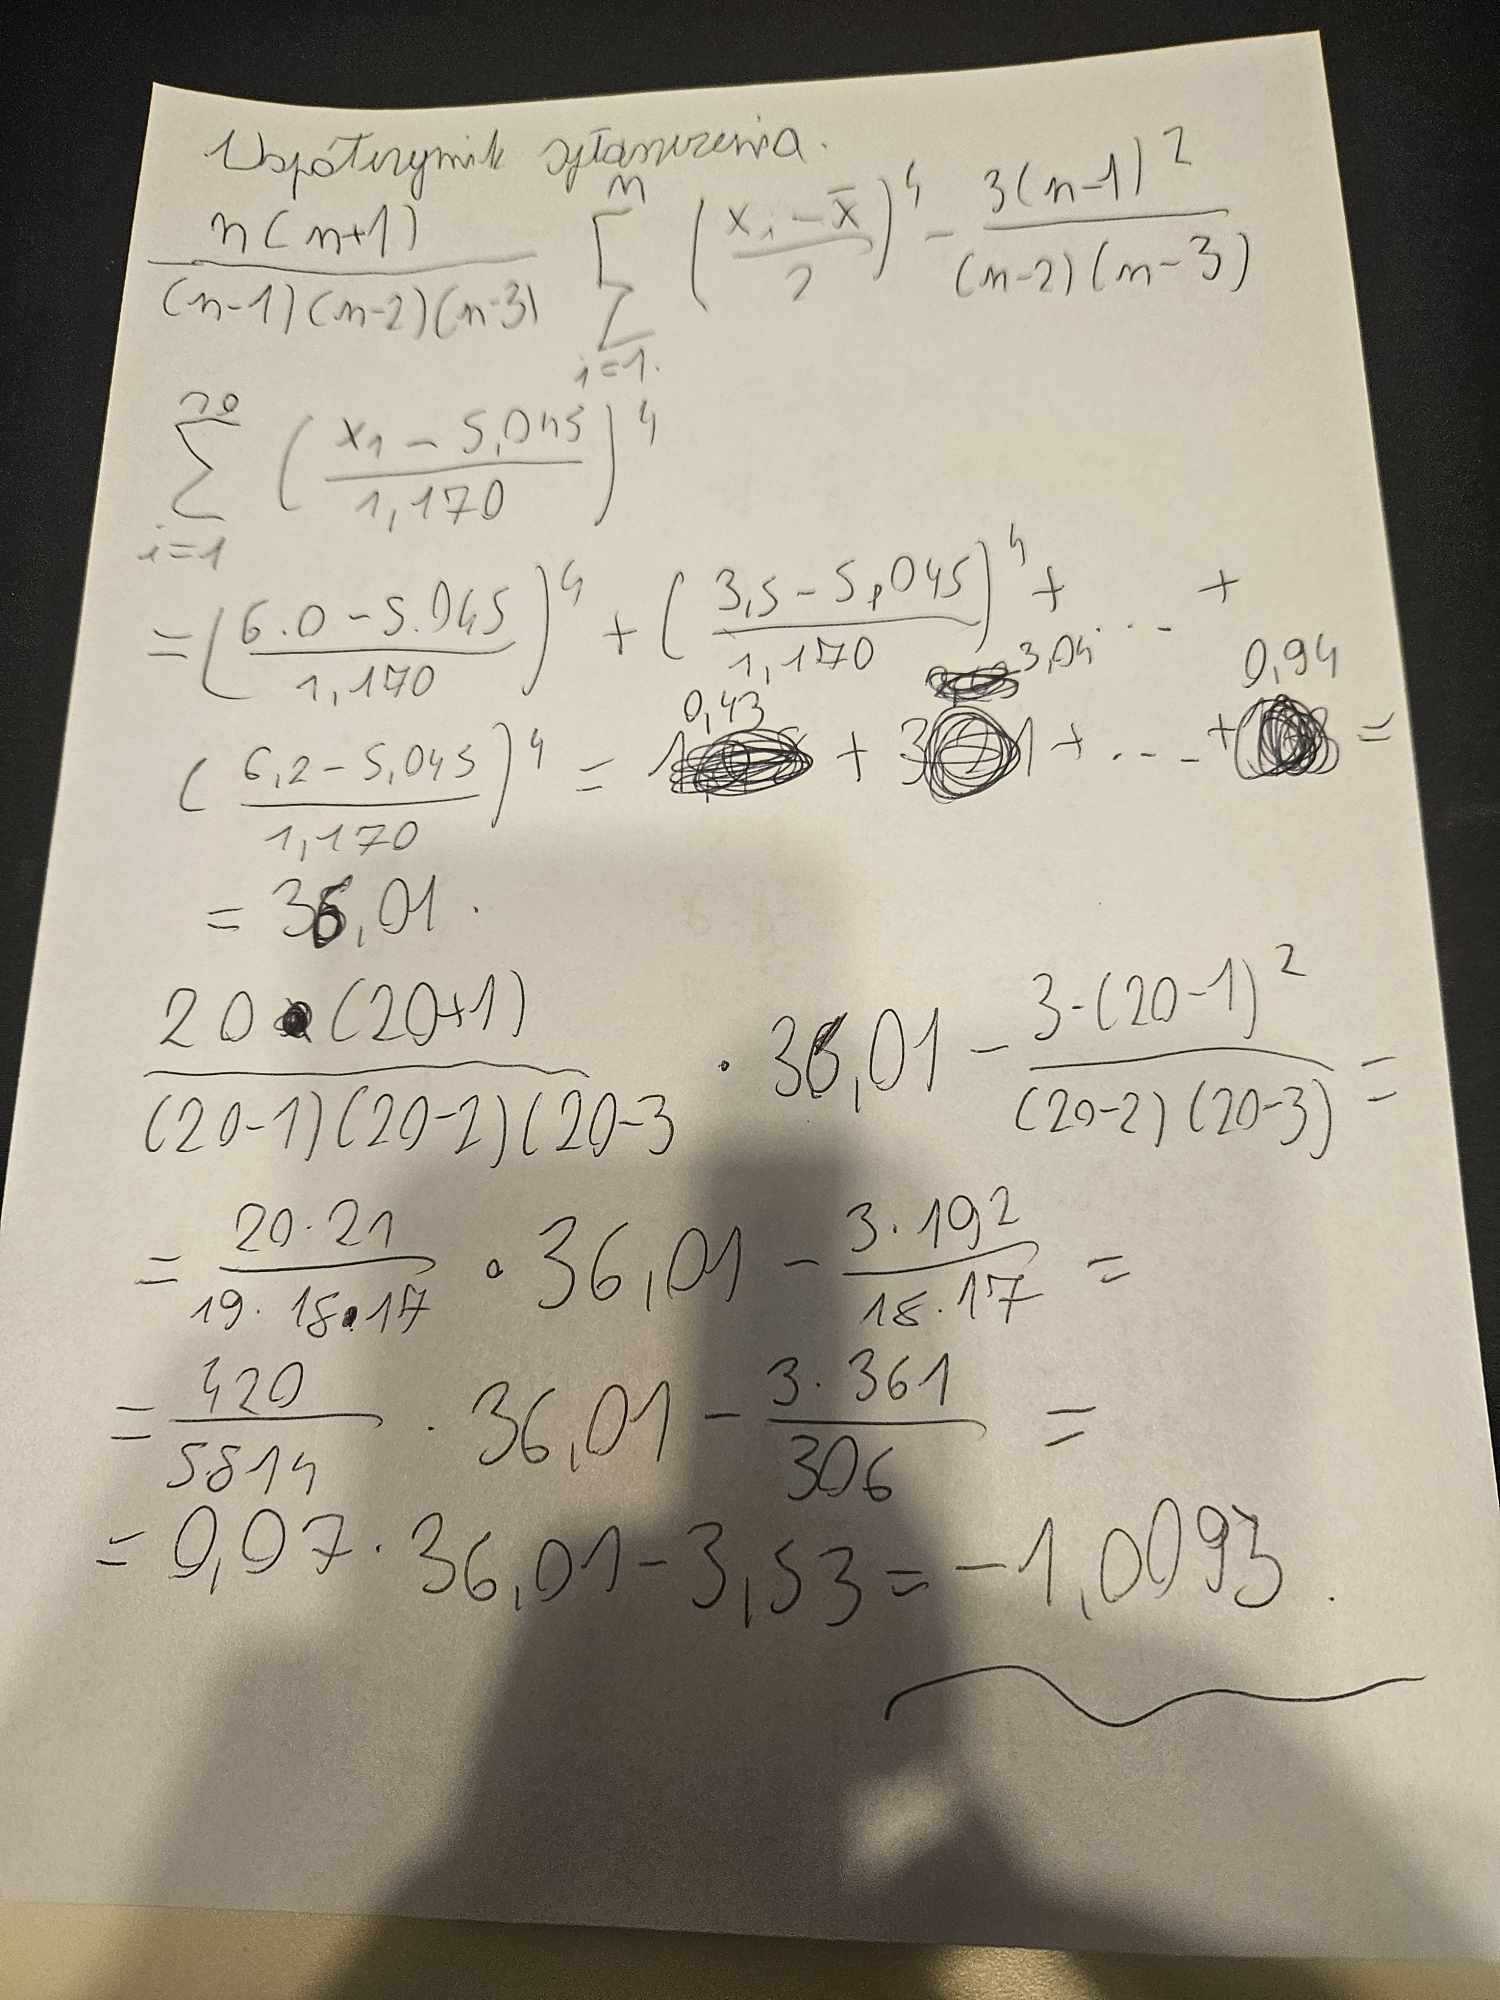 Współczynnik spłaszczenia.
n(n+1) / (n-1)(n-2)(n-3) n Σ i=1. (xᵢ - x̄ / 2)⁴ - 3(n-1)² / (n-2)(n-3)
20 Σ i=1 (x₁ - 5,045 / 1,170)⁴
= (6.0 - 5.045 / 1,170)⁴ + (3,5 - 5,045 / 1,170)⁴ + ... +
(6,2 - 5,045 / 1,170)⁴ = 0,43 + 3,04 + ... + 0,94 =
= 36,01.
20 (20+1) / (20-1)(20-2)(20-3 · 36,01 - 3·(20-1)² / (20-2)(20-3) =
= 20·21 / 19·18·17 · 36,01 - 3·19² / 18·17 =
= 420 / 5814 · 36,01 - 3·361 / 306 =
= 0,07 · 36,01 - 3,53 = -1,0093.